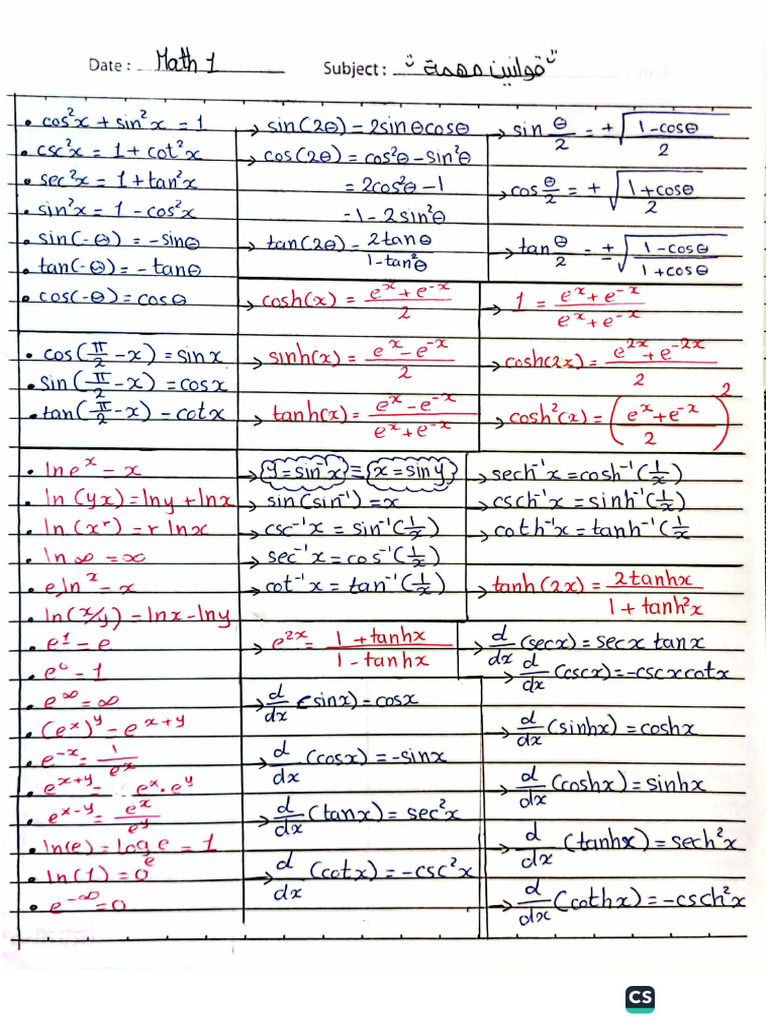 Date : Math 1 Subject : "قوانين مهمة"
• cos²x + sin²x = 1
• csc²x = 1 + cot²x
• sec²x = 1 + tan²x
• sin²x = 1 - cos²x
• sin(-θ) = -sinθ
• tan(-θ) = -tanθ
• cos(-θ) = cosθ
• cos(π/2 - x) = sinx
• sin(π/2 - x) = cosx
• tan(π/2 - x) - cotx
→ sin(2θ) - 2sinθcosθ
→ cos(2θ) = cos²θ - sin²θ
= 2cos²θ - 1
- 1 - 2sin²θ
→ tan(2θ) - 2tanθ / 1 - tan²θ
→ sin θ/2 = + √(1 - cosθ) / 2
→ cos θ/2 = + √(1 + cosθ) / 2
→ tan θ/2 = ± √(1 - cosθ / 1 + cosθ)
→ cosh(x) = e^x + e^-x / 2
→ sinh(x) = e^x - e^-x / 2
→ tanh(x) = e^x - e^-x / e^x + e^-x
→ 1 = e^x + e^-x / e^x + e^-x
→ cosh(2x) = e^2x + e^-2x / 2
→ cosh²(x) = (e^x + e^-x / 2)²
• ln e^x - x
• ln (yx) = lny + lnx
• ln (x^r) = r lnx
• ln ∞ = ∞
• e^ln x - x
• ln(x/y) = lnx - lny
• e^1 - e
• e^0 - 1
• e^∞ = ∞
• (e^x)^y - e^x+y
• e^-x = 1 / e^x
• e^x+y = e^x . e^y
• e^x-y = e^x / e^y
• ln(e) = log_e e = 1
• ln(1) = 0
• e^-∞ = 0
→ y = sin⁻¹x ≡ x = siny
→ sin(sin⁻¹) = x
→ csc⁻¹x = sin⁻¹(1/x)
→ sec⁻¹x = cos⁻¹(1/x)
→ cot⁻¹x = tan⁻¹(1/x)
→ sech⁻¹x = cosh⁻¹(1/x)
→ csch⁻¹x = sinh⁻¹(1/x)
→ coth⁻¹x = tanh⁻¹(1/x
→ tanh(2x) = 2tanhx / 1 + tanh²x
→ e^2x = 1 + tanhx / 1 - tanhx
→ d/dx (sinx) = cosx
→ d/dx (cosx) = -sinx
→ d/dx (tanx) = sec²x
→ d/dx (cotx) = -csc²x
→ d/dx (secx) = secx tanx
→ d/dx (cscx) = -cscxcotx
→ d/dx (sinhx) = coshx
→ d/dx (coshx) = sinhx
→ d/dx (tanhx) = sech²x
→ d/dx (cothx) = -csch²x
CS